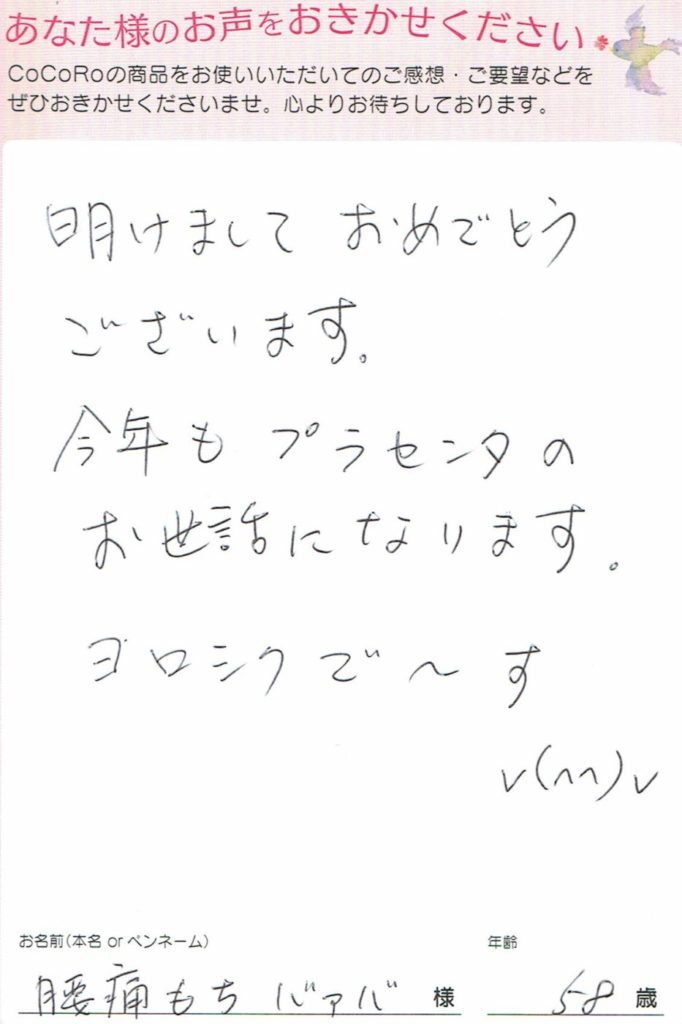 あなた様のお声をおきかせください
CoCoRoの商品をお使いいただいてのご感想・ご要望などを
ぜひおきかせくださいませ。心よりお待ちしております。
明けまして おめでとう
ございます。
今年も プラセンタの
お世話になります。
ヨロシクで〜す
v(^^)v
お名前(本名 or ペンネーム)
年齢
腰痛もち バァバ 様
58 歳